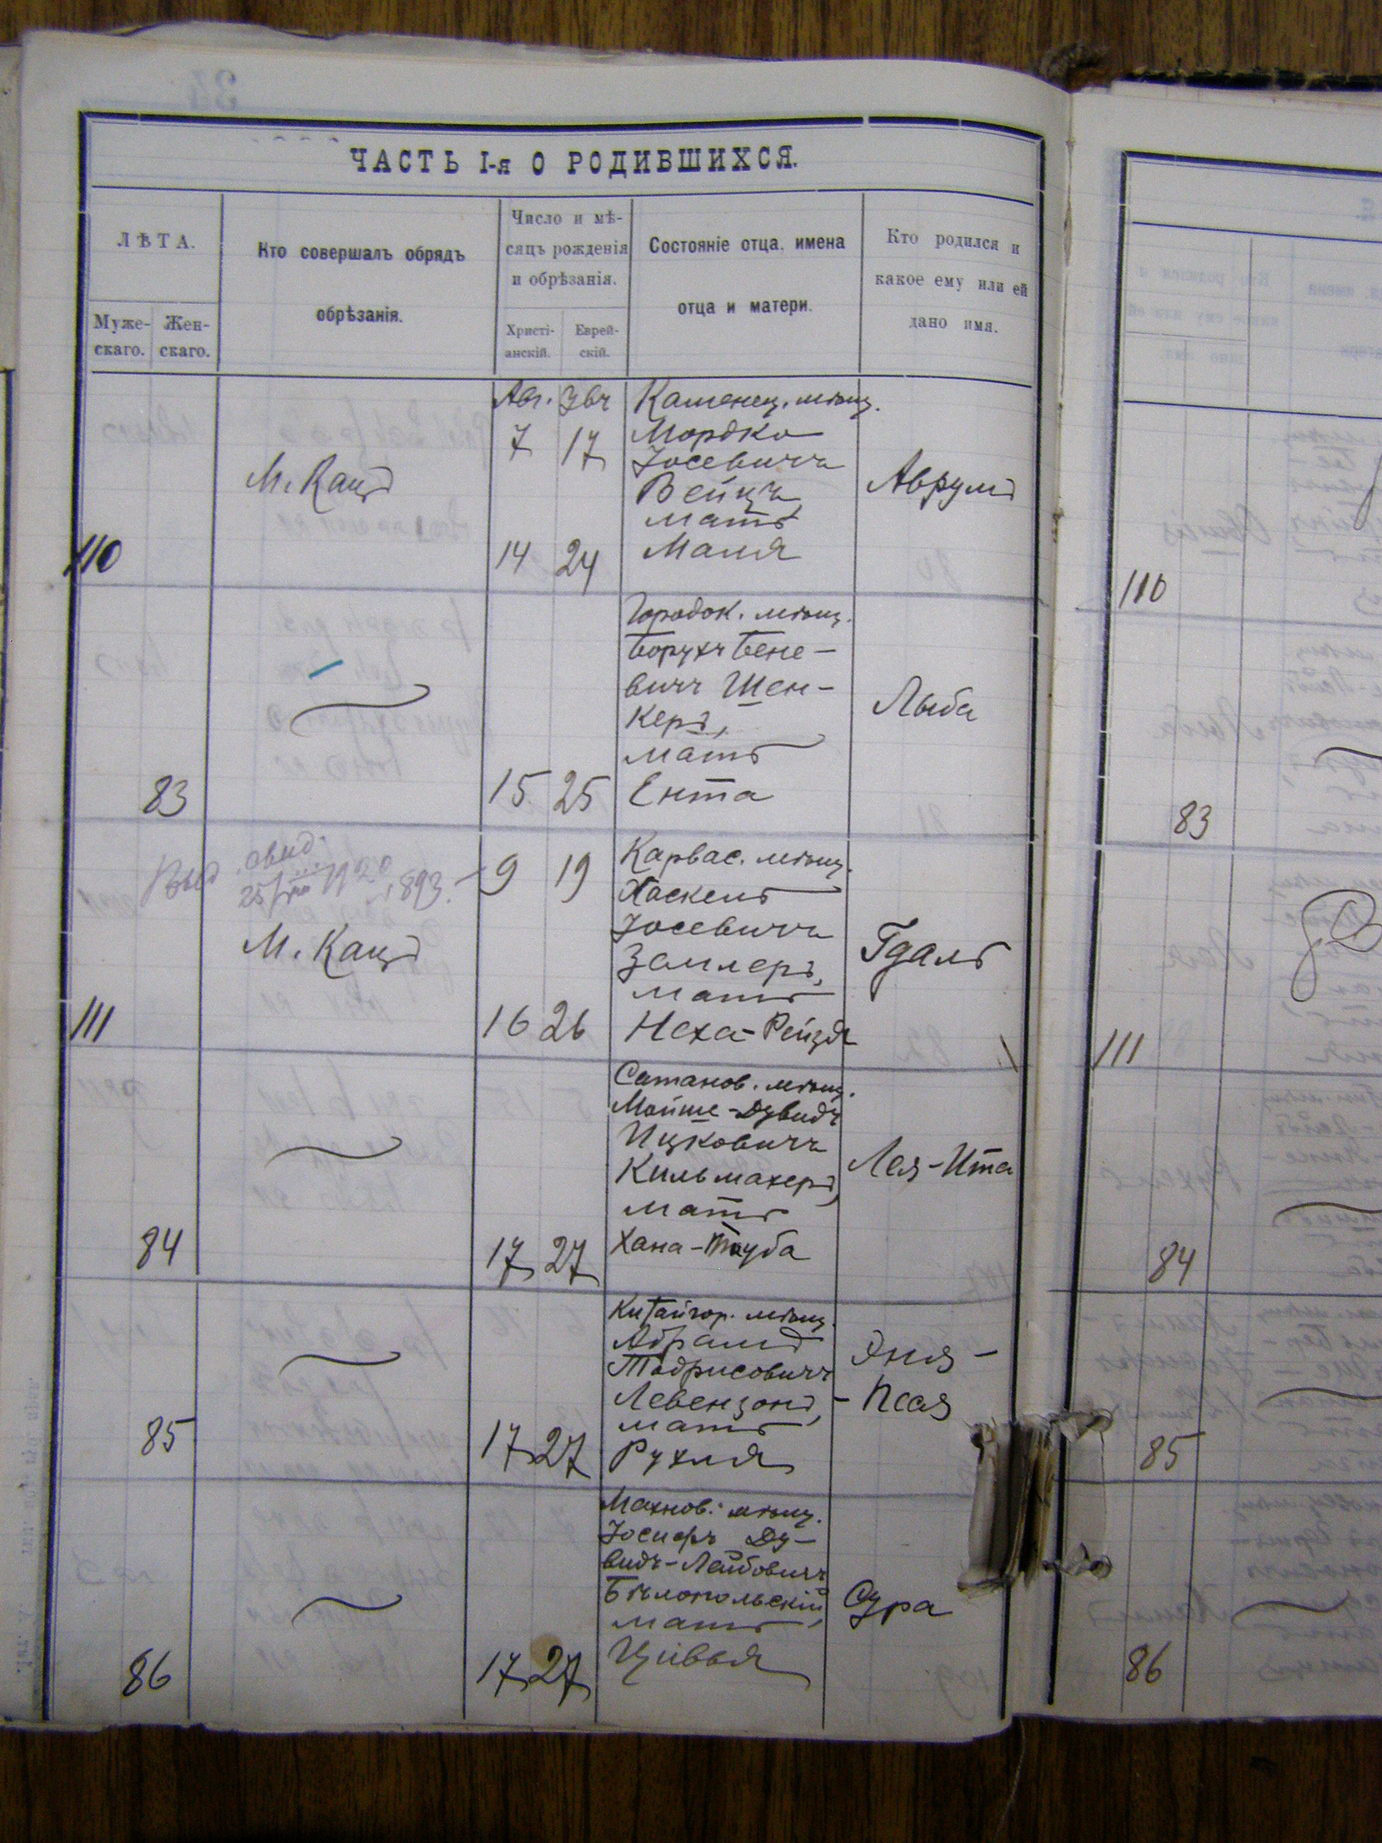 ЧАСТЬ I-я О РОДИВШИХСЯ.
ЛѢТА.
Муже-
скаго.
Жен-
скаго.
Кто совершалъ обрядъ
обрѣзанія.
Число и мѣ-
сяцъ рожденія
и обрѣзанія.
Христі-
анскій.
Еврей-
скій.
Состояніе отца. имена
отца и матери.
Кто родился и
какое ему или ей
дано имя.
Авг.
Каменец. мѣщ.
7 17 Мордко
Іосевичъ
М. Кацъ Вейцъ Аврумъ
мать
110 14 24 Маля
Городок. мѣщ.
Борухъ Бене-
вичъ Шен-
керъ, Лыба
мать
83 15 25 Ента
Выд свид.
1893.
9 19 Карвас. мѣщ.
Хаскель
Іосевичъ
М. Кацъ Замлеръ, Гдаль
мать
111 16 26 Неха-Рейзя
Сатанов. мѣщ.
Мойше-Дувидъ
Ицковичъ
Кильмахеръ, Лея-Ита
мать
84 17 27 Хана-Тауба
Китайгор. мѣщ.
Абрамъ Эня-
Тодрисовичъ
Левензонъ, -Песя
мать
85 17 27 Рухля
Махнов. мѣщ.
Іосифъ Ду-
видъ-Лейбовичъ
Бѣлопольскій, Сура
мать
86 17 27 Цивья
110
83
111
84
85
86